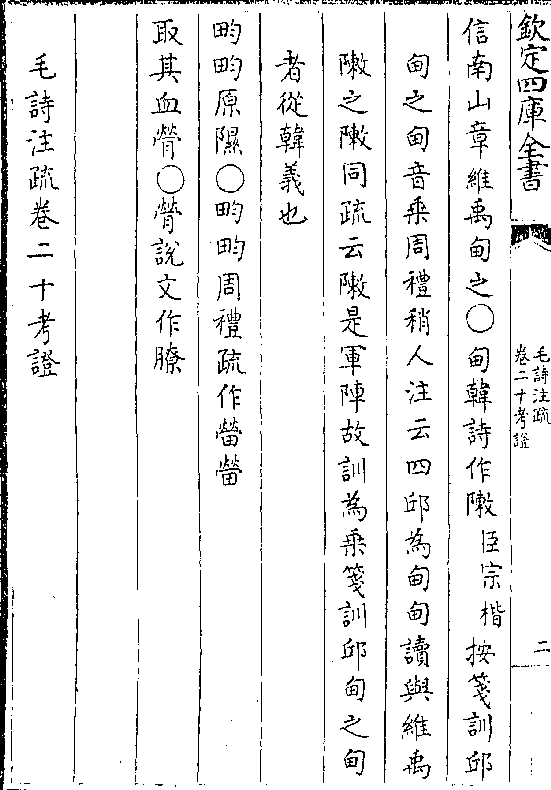 欽定四庫全書
毛詩注疏
卷二十考證
二
信南山章維禹甸之○甸韓詩作敶臣宗楷按箋訓邱
甸之甸音乗周禮稍人注云四邱為甸甸讀與維禹
敶之敶同疏云敶是軍陣故訓為乗箋訓邱甸之甸
者從韓義也
畇畇原隰○畇畇周禮疏作㽦㽦
取其血膋○膋說文作膫
毛詩注疏卷二十考證